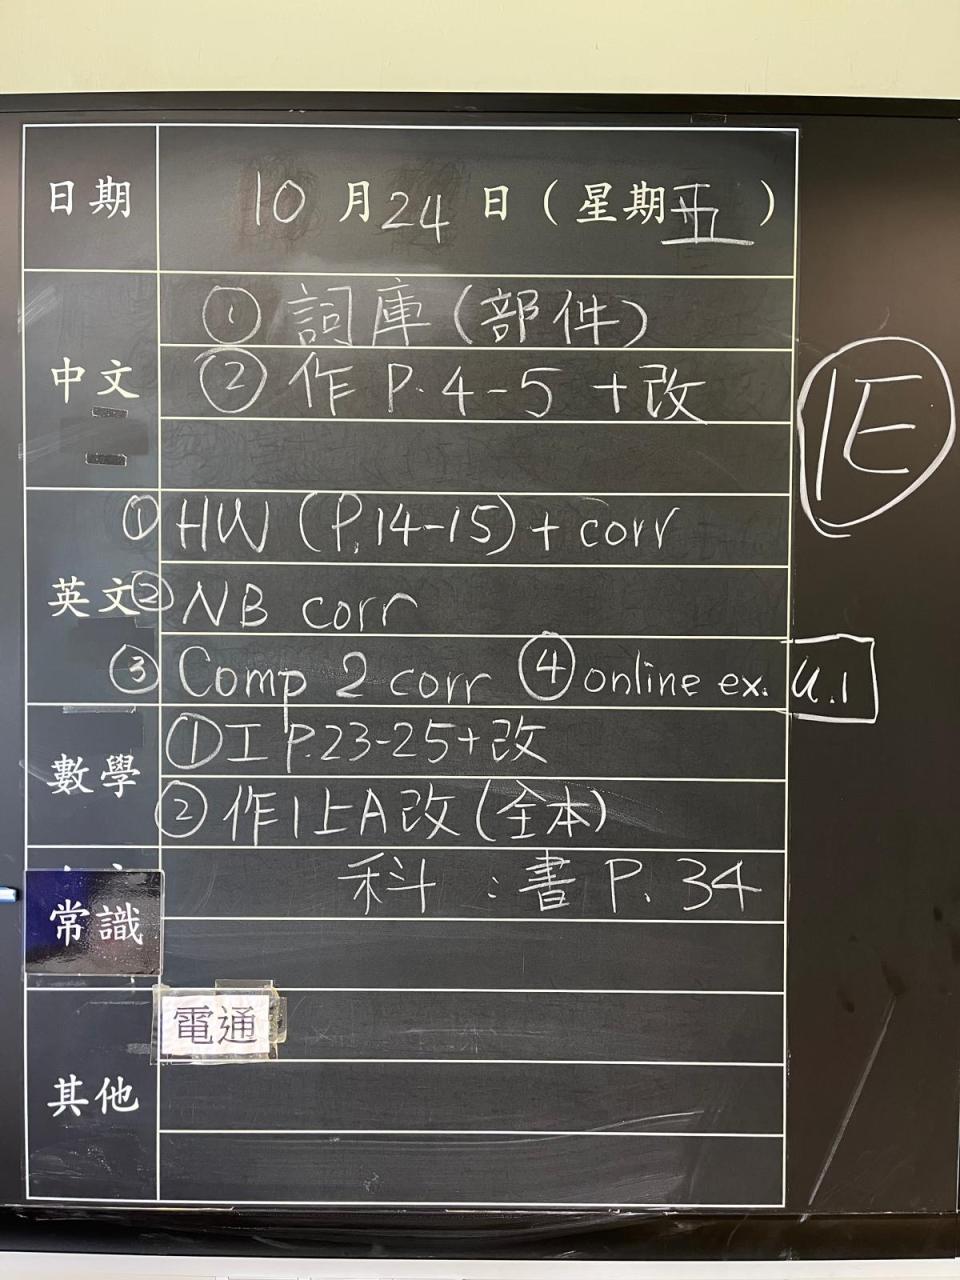 日期 10月24日(星期五)
中文
① 詞庫(部件)
② 作 P.4-5 +改
1E
英文
① HW (P.14-15) + corr
② NB corr
③ Comp 2 corr ④ online ex. U.1
數學
① 工 P.23-25+改
② 作1上A改(全本)
常識
科:書 P.34
其他
電通